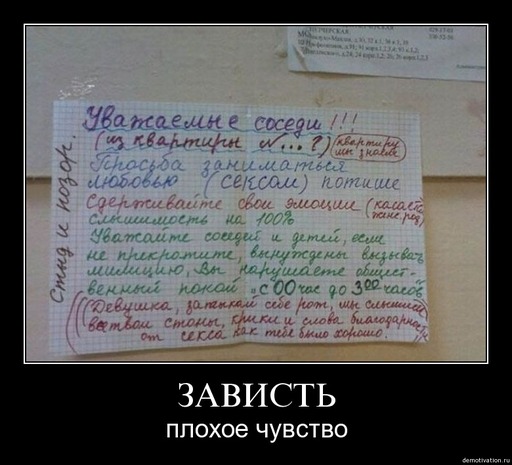 Уважаемые соседи!!!
(из квартиры №...?) (квартиру мы знаем)
Просьба заниматься
любовью (сексом) потише
Сдерживайте свои эмоции (касается женс. пред)
слышимость на 100%
Уважайте соседей и детей, если
не прекратите, вынуждены вызывать
милицию, Вы нарушаете общест-
венный покой "с 00 час до 3 00 часов"
((Девушка, заткни себе рот, мы слышим
все твои стоны, крики и слова благодарности
от секса как тебе было хорошо.
Стыд и позор.
ЗАВИСТЬ
плохое чувство
demotivation.ru